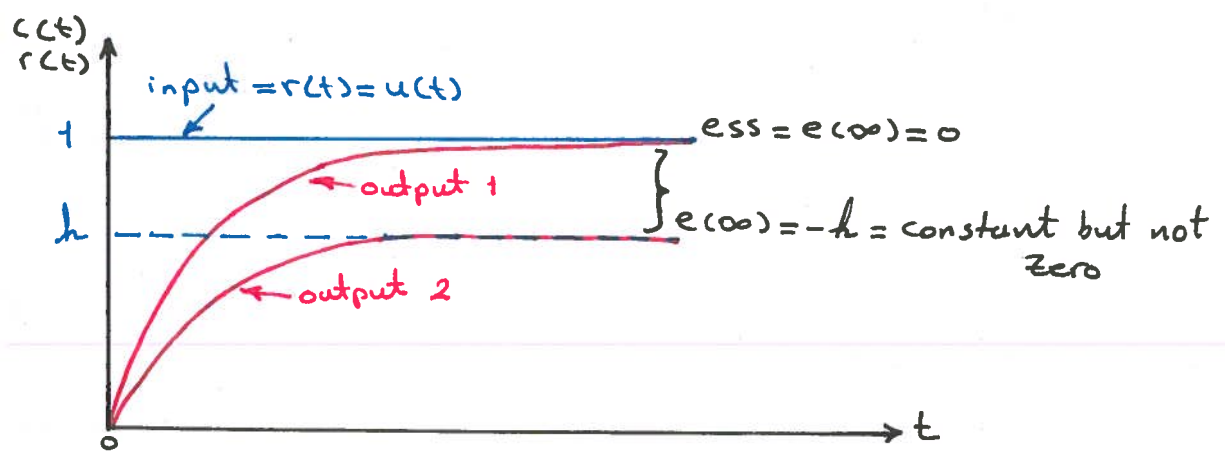 c(t)
r(t)
input = r(t) = u(t)
1
ess = e(∞) = 0
output 1
h
e(∞) = -h = constant but not
zero
output 2
0
t